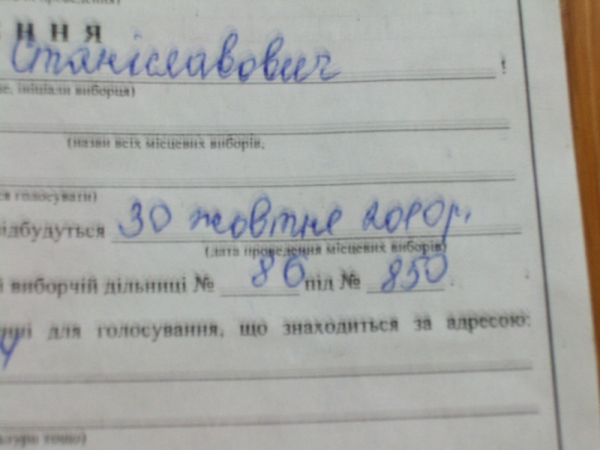 ння
Станіславович !
ініціали виборця)
(назви всіх місцевих виборів,
голосувати)
відбудуться 30 жовтне 2010р.
(дата проведення місцевих виборів)
виборчій дільниці № 86 під № 850.
для голосування, що знаходиться за адресою:
тощо)